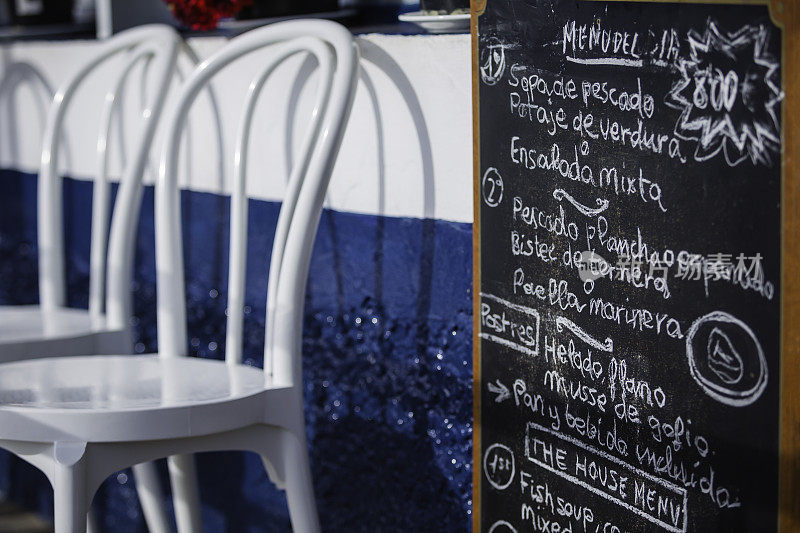 MENU DEL DIA
800
1º
Sopa de pescado
Potaje de verdura
Ensalada mixta
2º
Pescado plancha o
Bistec de ternera
Paella marinera
Postres
Helado, flan o
musse de gofio.
Pan y bebida incluida
THE HOUSE MENU
1st
Fish soup,
mixed
新片场